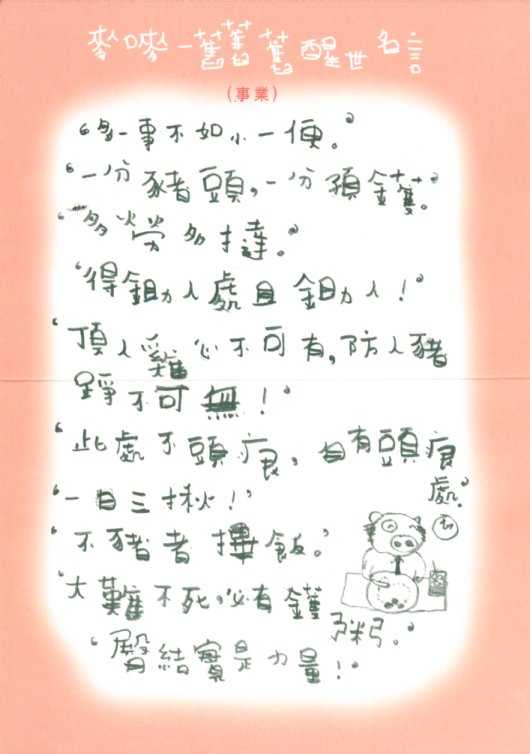 麥嘜一舊舊舊醒世名言
(事業)
“多一事不如小一便。”
“一分豬頭，一分預鑊。”
“多勞多撻。”
“得鋤人處且鋤人！”
“頂人雞心不可有，防人豬
踭不可無！”
“此處不頭痕，自有頭痕
處。”
“一日三揪！”
“不豬者摟飯。”
“大難不死，必有鑊
粥。”
“臀結實是力量！”